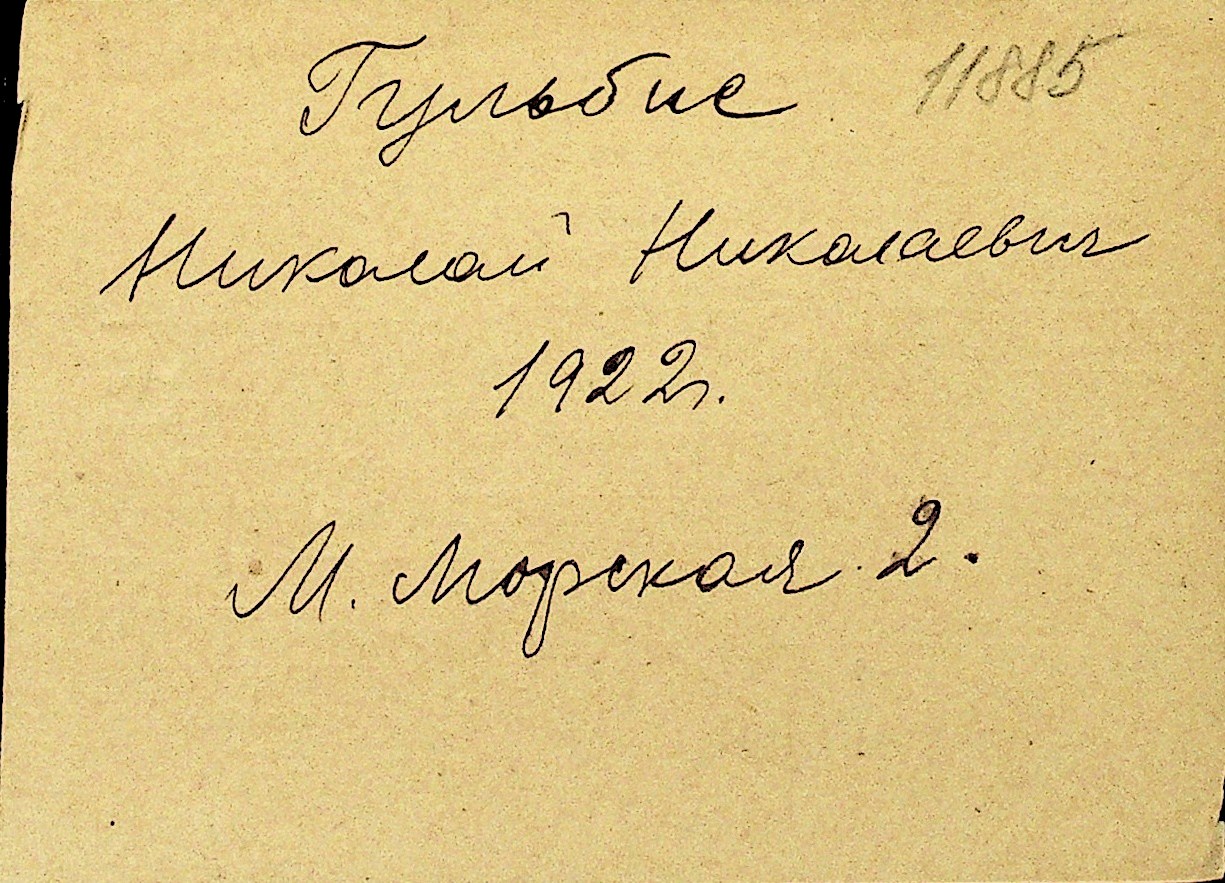 Гульбис 11885
Николай Николаевич
1922г.
М. Морская 2.